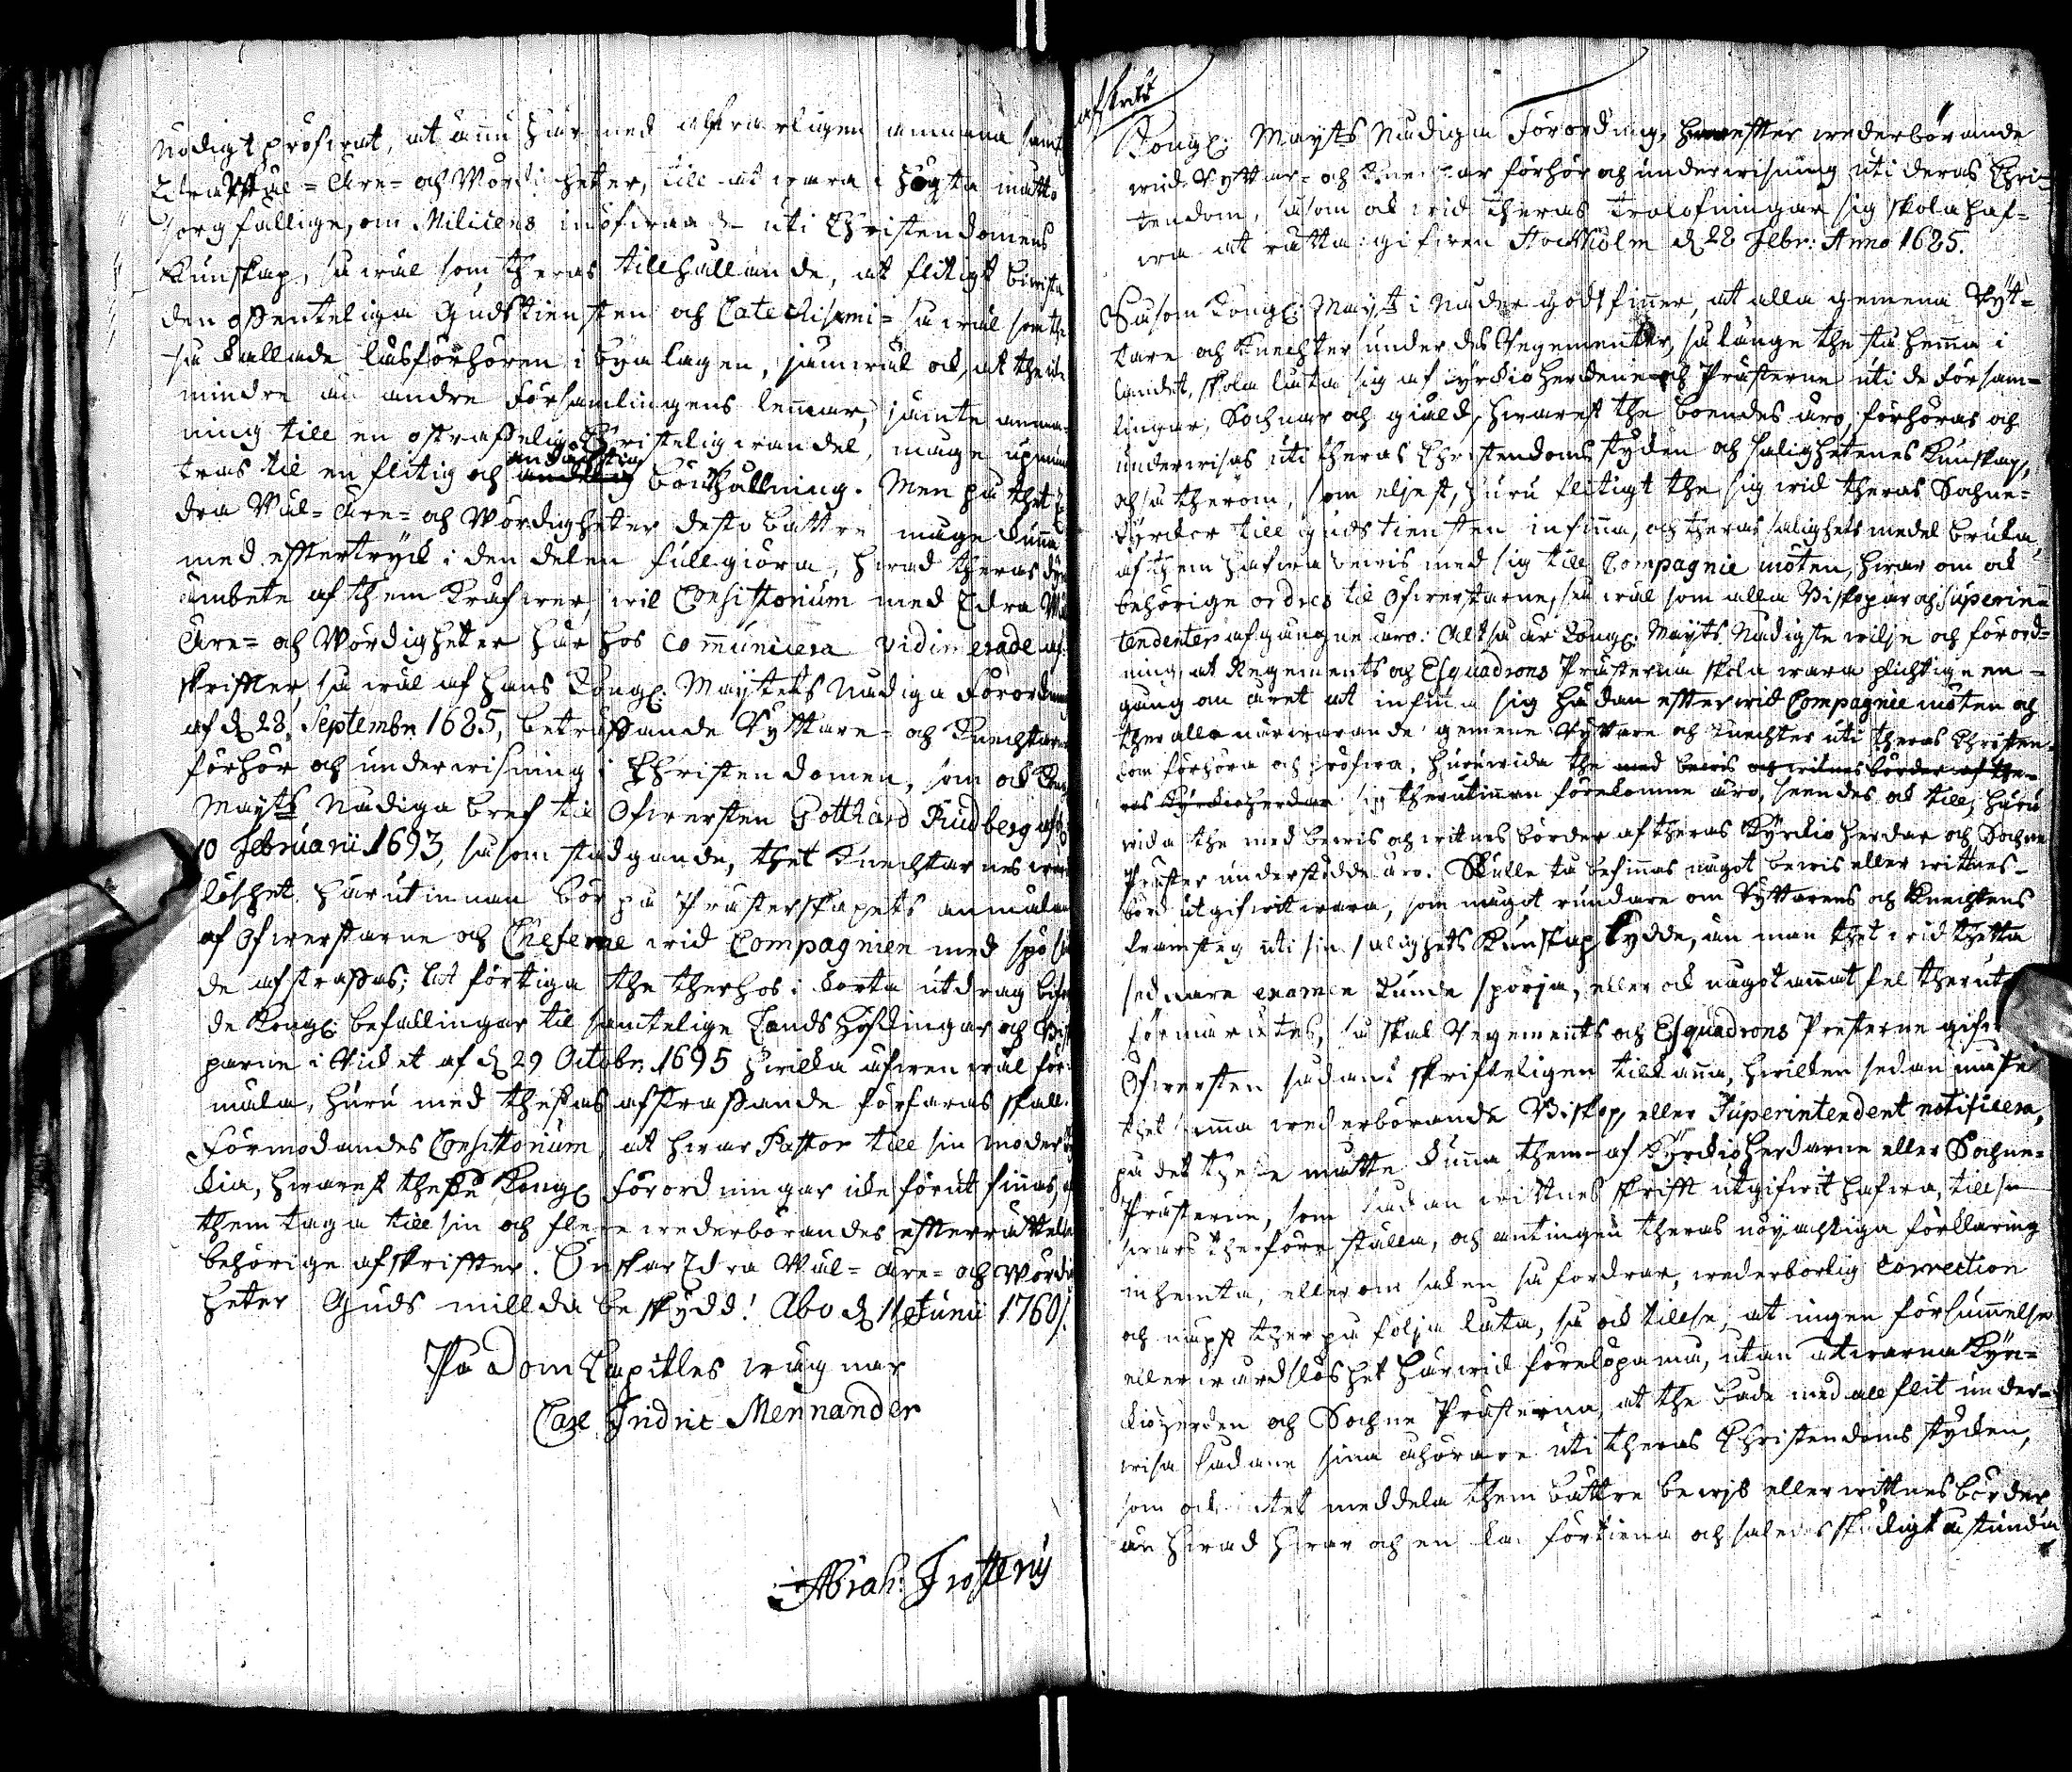 nödigt pröfwat, at ännu härmed alfwarligen anmana samt
Edra Wäl- Äre- och Wördigheter, till at wara i högsta måtto
sorgfällige, om Miliciens inöfwande uti Christendomens
Kunskap, så wäl som theras tillhållande, at flitigt biwista
den offenteliga Gudstiensten och Catechismi- så wäl som the
så kallade läsförhören i Byalagen, jämwäl ock, at the icke
mindre än andre Församlingens lemmar, jämte anma-
ning till en ostraffelig Christelig wandel, måge upmun
andächtig
tras til en flitig och andelig bönhållning. Men på thet E
dra Wäl- Äre- och Wördigheter desto bättre måge kunna
med eftertryck i den delen fullgiöra, hwad theras dyra
ämbete af them kräfwer, wil Consistorium med Edra Wäl
Äre- och Wördigheter här hos communicera vidimerade af-
skrifter, så wäl af Hans Kongl. Maijtets Nådiga Förordning
af d 28. Septembr. 1685, beträffande Ryttare- och Knechtarnes
förhör och underwisning i Christendomen, som ock Kongl.
Mayts Nådiga bref til Öfwersten Gotthard Rudberg af d
10 Februarii 1693, såsom stadgande, thet Knechtarnes wård
löshet härutinnan bör på Prästerskapets anmälan
af Öfwerstarne och Cheferne wid Compagnien med spö
de afstraffas; Ett förtiga the therhos i korta utdrag bifoga
de Kongl. befallningar til samtelige Landshöfdingar och Bis
parne i Riket af d 29 Octobr. 1695 hwilka äfwen wäl för-
mäla, huru med thessas afstraffande förfaras skall.
Förmodandes Consistorium, at hwar Pastor till sin moderkyr
kia, hwarest thesse Kongl Förordningar icke förut finnas,
them taga till sin och flere wederbörandes efterrättelse
behörige afskrifter. Önskar Edra Wäl- Äre- och Wördig
heter Guds millda beskydd! Åbo d 11 Junii 1760.
På DomCapitles wägnar
Carl Fridric Mennander
Abrah: Frosterus
afskrift
Kongl. Mayts Nådiga Förordning, hwarefter wederbörande
wid Ryttar- och Knechtar förhör och underwisning uti deras Chri-
stendom, såsom ock wid theras trolofningar sig skola haf-
wa at rätta: gifwen Stockholm d 28 Febr: Anno 1685.
Såsom Kongl. Mayt i Nåder godt finner, at alla gemena Ryt-
tare och Knechter under des Regementer, så länge the stå hemma i
landet, skola låta sig af Kyrckioherdene och Prästerne uti de Försam-
lingar, Sochnar och giäld, hwarest the boendes äro, förhöras och
underwisas uti theras Christendoms stycken och salighetenes Kunskap,
och så therom, som eljest, huru flitigt the sig wid theras Sochne-
kyrckor till gudstiensten infinna, och theras salighets medel bruka,
af them hafwa bewis med sig till Compagnie möten, hwar om ock
behörige ordres til Öfwerstarne, så wäl som alla Biskopar och Superin-
tendenter afgångne äro. Altså är Kongl. Mayts Nådigste wilje och förord-
ning, at Regements och Esquadrons Prästerna skola wara plichtige en-
gång om året at infinna sig hädan efter wid Compagnie möten och
ther alla närwarande gemene Ryttare och Knechter uti theras Christen-
dom förhöra och pröfwa, huruwida the med bewis och witnesbörder af the-
ras Kyrckioherdar sig therutinnan förekomne äro, seendes ock till, huru
wida the med bewis och witnesbörder af theras Kyrckioherdar och Sochne
Präster understödde äro. Skulle tå befinnas något bewis eller wittnes-
börd utgifwit wara, som något rundare om Ryttarens och Knechtens
framsteg uti sin salighets Kunskap lydde, än man thet wid thetta
sednare examen kunde spörja, eller ock något annat fel therut
förmärcktes, så skal Regements och Esquadrons Presterne gifwa
Öfwersten sådant skrifteligen tillkänna, hwilken sedan måste
thet samma wederbörande Biskop, eller Superintendent notificera,
på det these måtte kunna them af Kyrckioherdarne eller Sochne-
Prästerne, som sådan wittnesskrift utgifwit hafwa, till sin
swars therföre ställa, och antingen theras nöyachtiga förklaring
inhemta, eller om saken så fordrar, wederbörlig Correction
och näpst ther på följa låta, så ock tillse, at ingen försummelse
eller wårdslöshet härwid förelöpa må, utan at warna Kyr-
kioherden och Sochne Prästerna, at the både med all flit under-
wisa sådane sina åhörare uti theras Christendoms stycken,
som ock intet meddela them bättre bewjs eller wittnesbörder
än hwad hwar och en kan förtiena och således skäligt åstunda